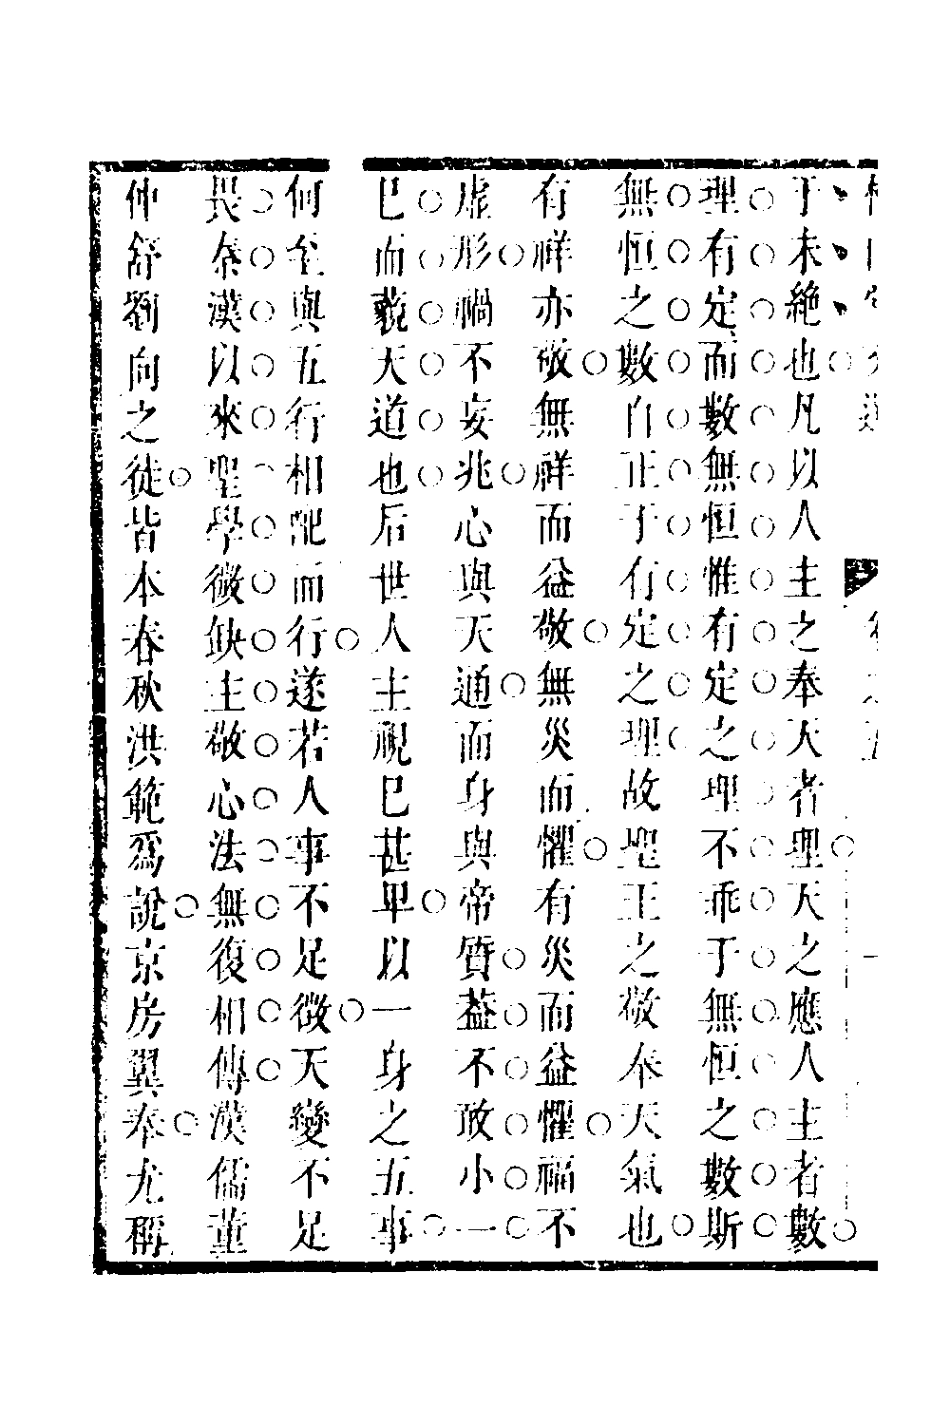 于未絶也凡以人主之奉天者理天之應人主者數
理有定而數無恒惟有定之理不乖于無恒之數斯
無恒之數自正于有定之理故聖王之敬奉天氣也
有祥亦敬無祥而益敬無災而懼有災而益懼福不
虛形禍不妄兆心與天通而身與帝質葢不敢小一
巳而藐天道也后世人主視巳甚卑以一身之五事
何至與五行相配而行遂若人事不足徵天變不足
畏秦漢以來聖學微缺主敬心法無復相傳漢儒董
仲舒劉向之徒皆本春秋洪範爲說京房翼奉尤稱